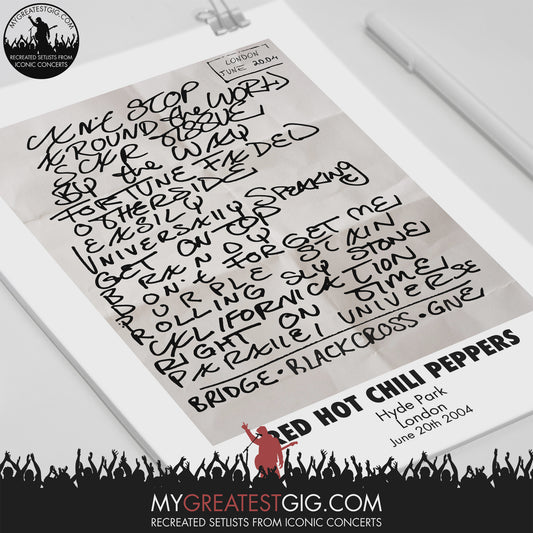 MYGREATESTGIG.COM
RECREATED SETLISTS FROM
ICONIC CONCERTS
LONDON
JUNE 2004
CAN'T STOP
AROUND the WORLD
SCAR TISSUE
By the WAY
FORTUNE FADED
OTHERSIDE
EASILY
UNIVERSALLY SPEAKING
GET ON TOP
BRANDY
DON'T FORGET ME
PURPLE STAIN
ROLLING SLY STONE
CALIFORNICATION
RIGHT ON TIME
PARALLEL UNIVERSE
BRIDGE • BLACKCROSS • GIVE
RED HOT CHILI PEPPERS
Hyde Park
London
June 20th 2004
MYGREATESTGIG.COM
RECREATED SETLISTS FROM ICONIC CONCERTS